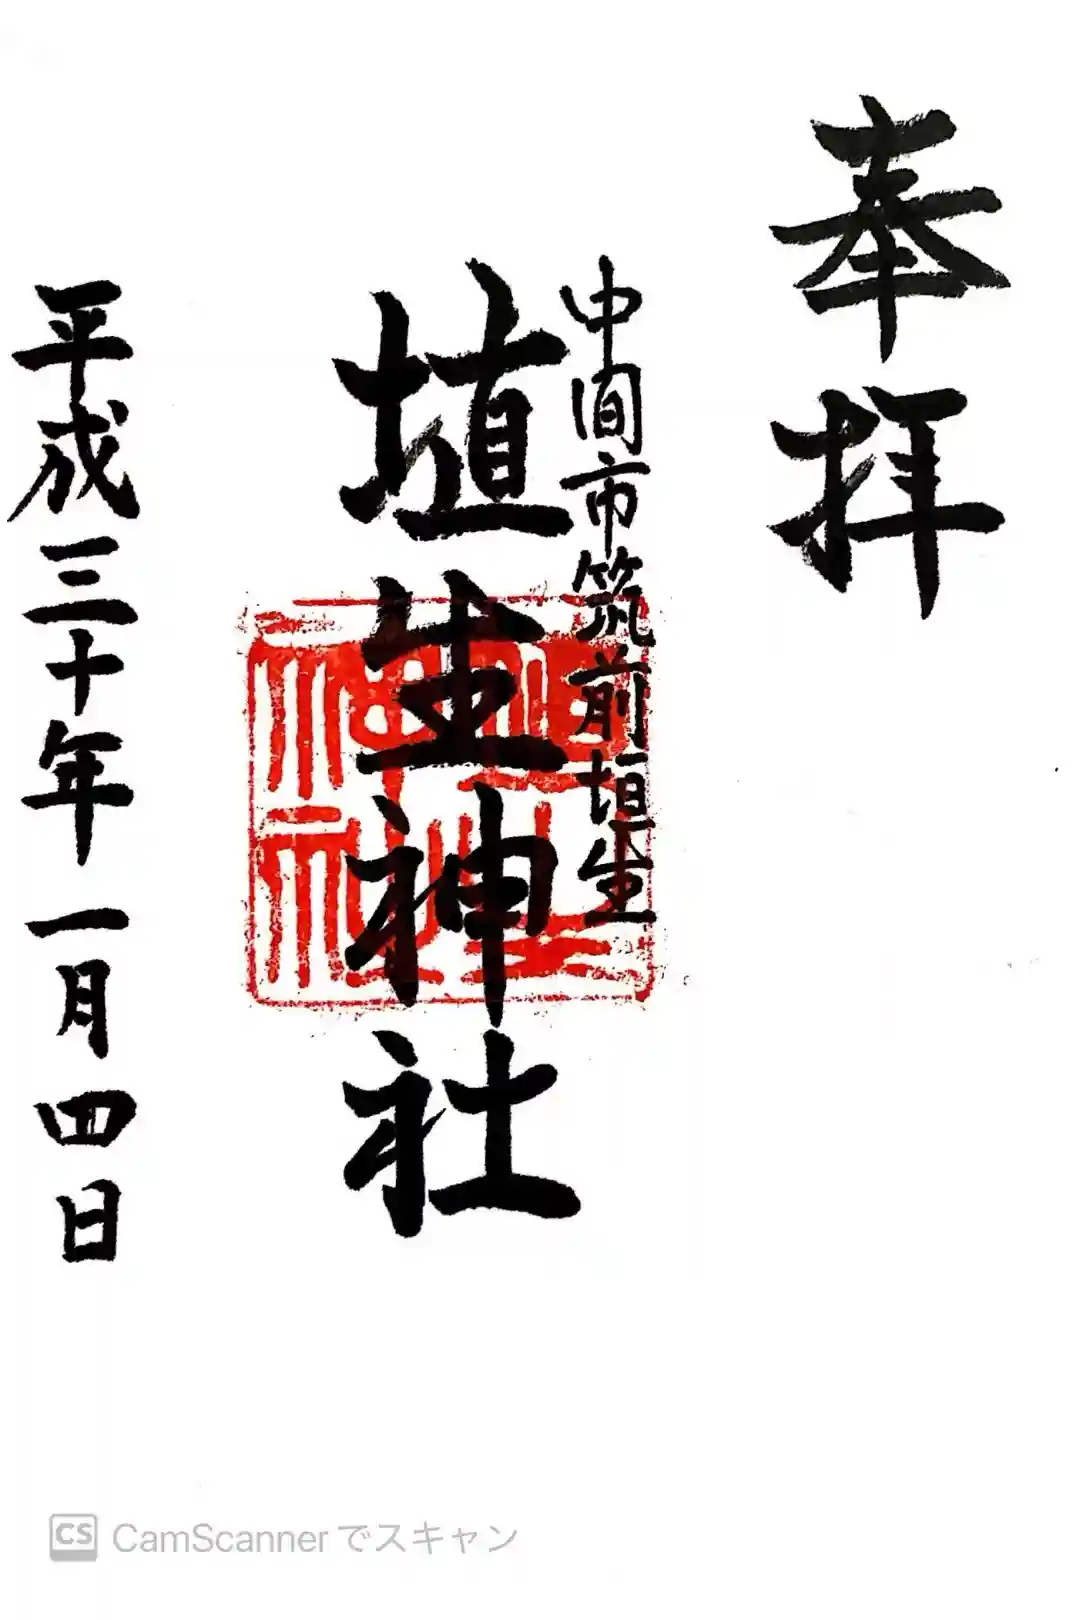 奉拝
中間市筑前垣生
埴生神社
平成三十年一月四日
CS CamScannerでスキャン